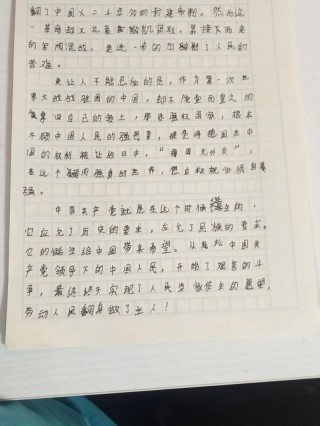 翻了中国人二千多年的封建帝制。然而这
一革命却又
军阀混战，更进一步的加剧了人民的
苦难。
更让人不能忍的是，作为第一次世
界大战战胜国的中国，却不能堂而皇之的
自己的领土，那些强权国家，根本
不顾中国人民的强烈要求，硬是将德国在中
国的权利转让给日本。“弱国无外交”，
在这个弱肉强食的世界，想自救就必须自
强。
中国共产党就是在这个时候诞生的，
它应允了历史的要求，应允了民族的要求。
它的诞生给中国带来希望。从此中国共
产党领导下的中国人民，开始了艰苦的斗
争，最终终于实现了人民当家做主的愿望，
劳动人民翻身做了主人！